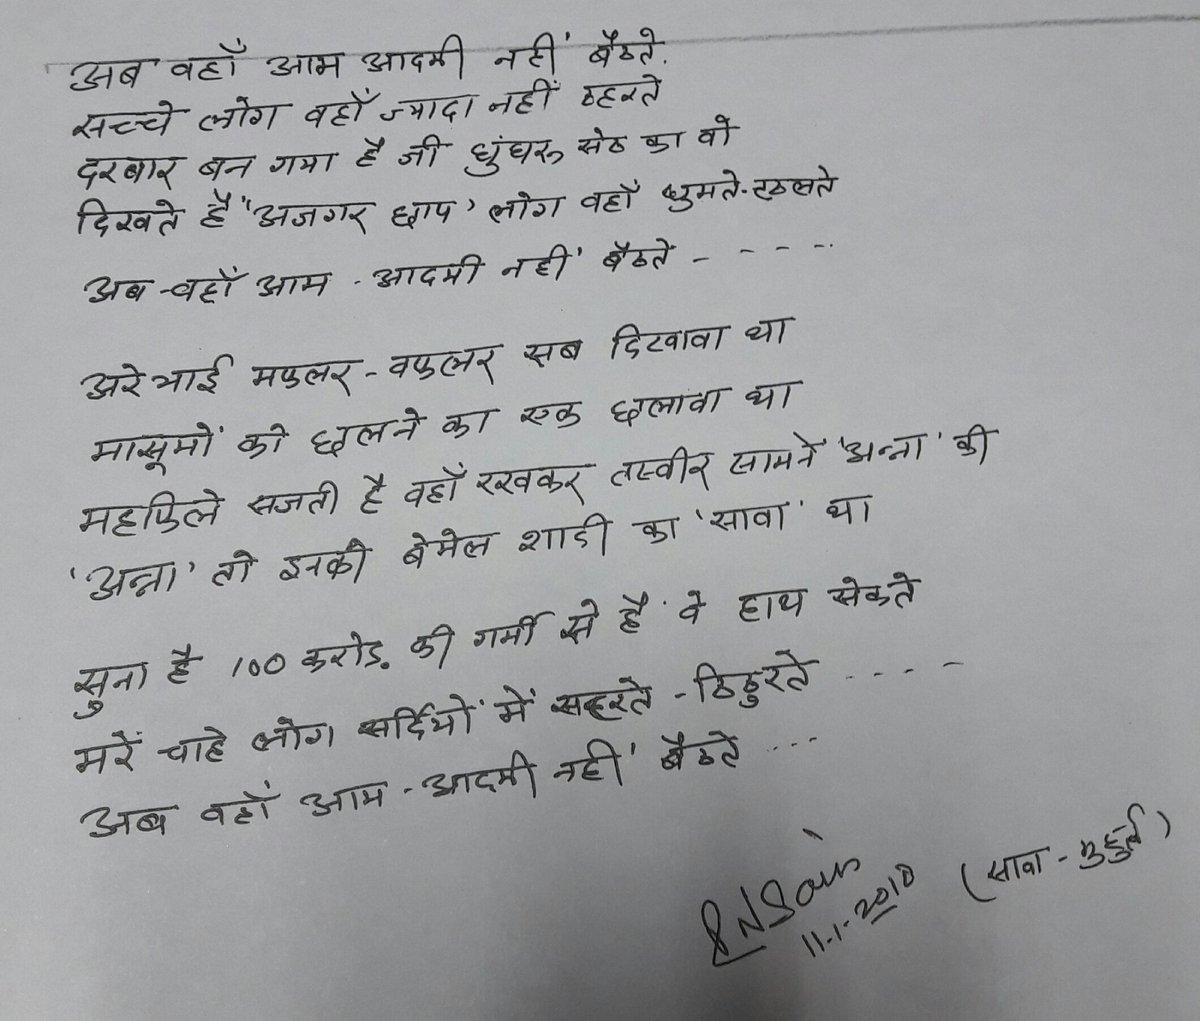 अब वहाँ आम आदमी नहीं बैठते.
सच्चे लोग वहाँ ज्यादा नहीं ठहरते
दरबार बन गया है जी घुंघरू सेठ का वो
दिखते हैं 'अजगर छाप' लोग वहाँ घुमते-टहलते
अब वहाँ आम - आदमी नहीं बैठते - - - - -
अरे भाई मफलर-वफलर सब दिखावा था
मासूमों को छलने का एक छलावा था
महफिले सजती है वहाँ रखकर तस्वीर सामने 'अन्ना' की
'अन्ना' तो इनकी बेमेल शादी का 'सावा' था
सुना है 100 करोड़ की गर्मी से हैं वे हाथ सेकते
मरें चाहे लोग सर्दियों में - ठिठुरते - - - -
अब वहाँ आम - आदमी नहीं बैठते ...
11.1.2018 (सावा - मुहुर्त)